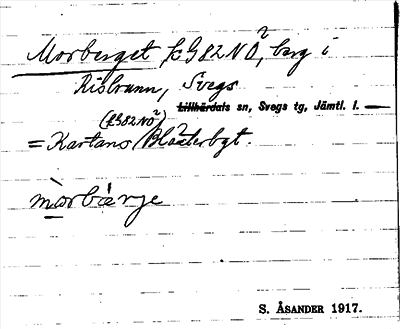 Morberget, k G82 NO², berg i
Risbrunn, Svegs
Lillhärdals sn, Svegs tg, Jämtl. l. —
(k G82 NO²)
= Kartans Blåsterbgt.
mòrbǽrje
S. ÅSANDER 1917.